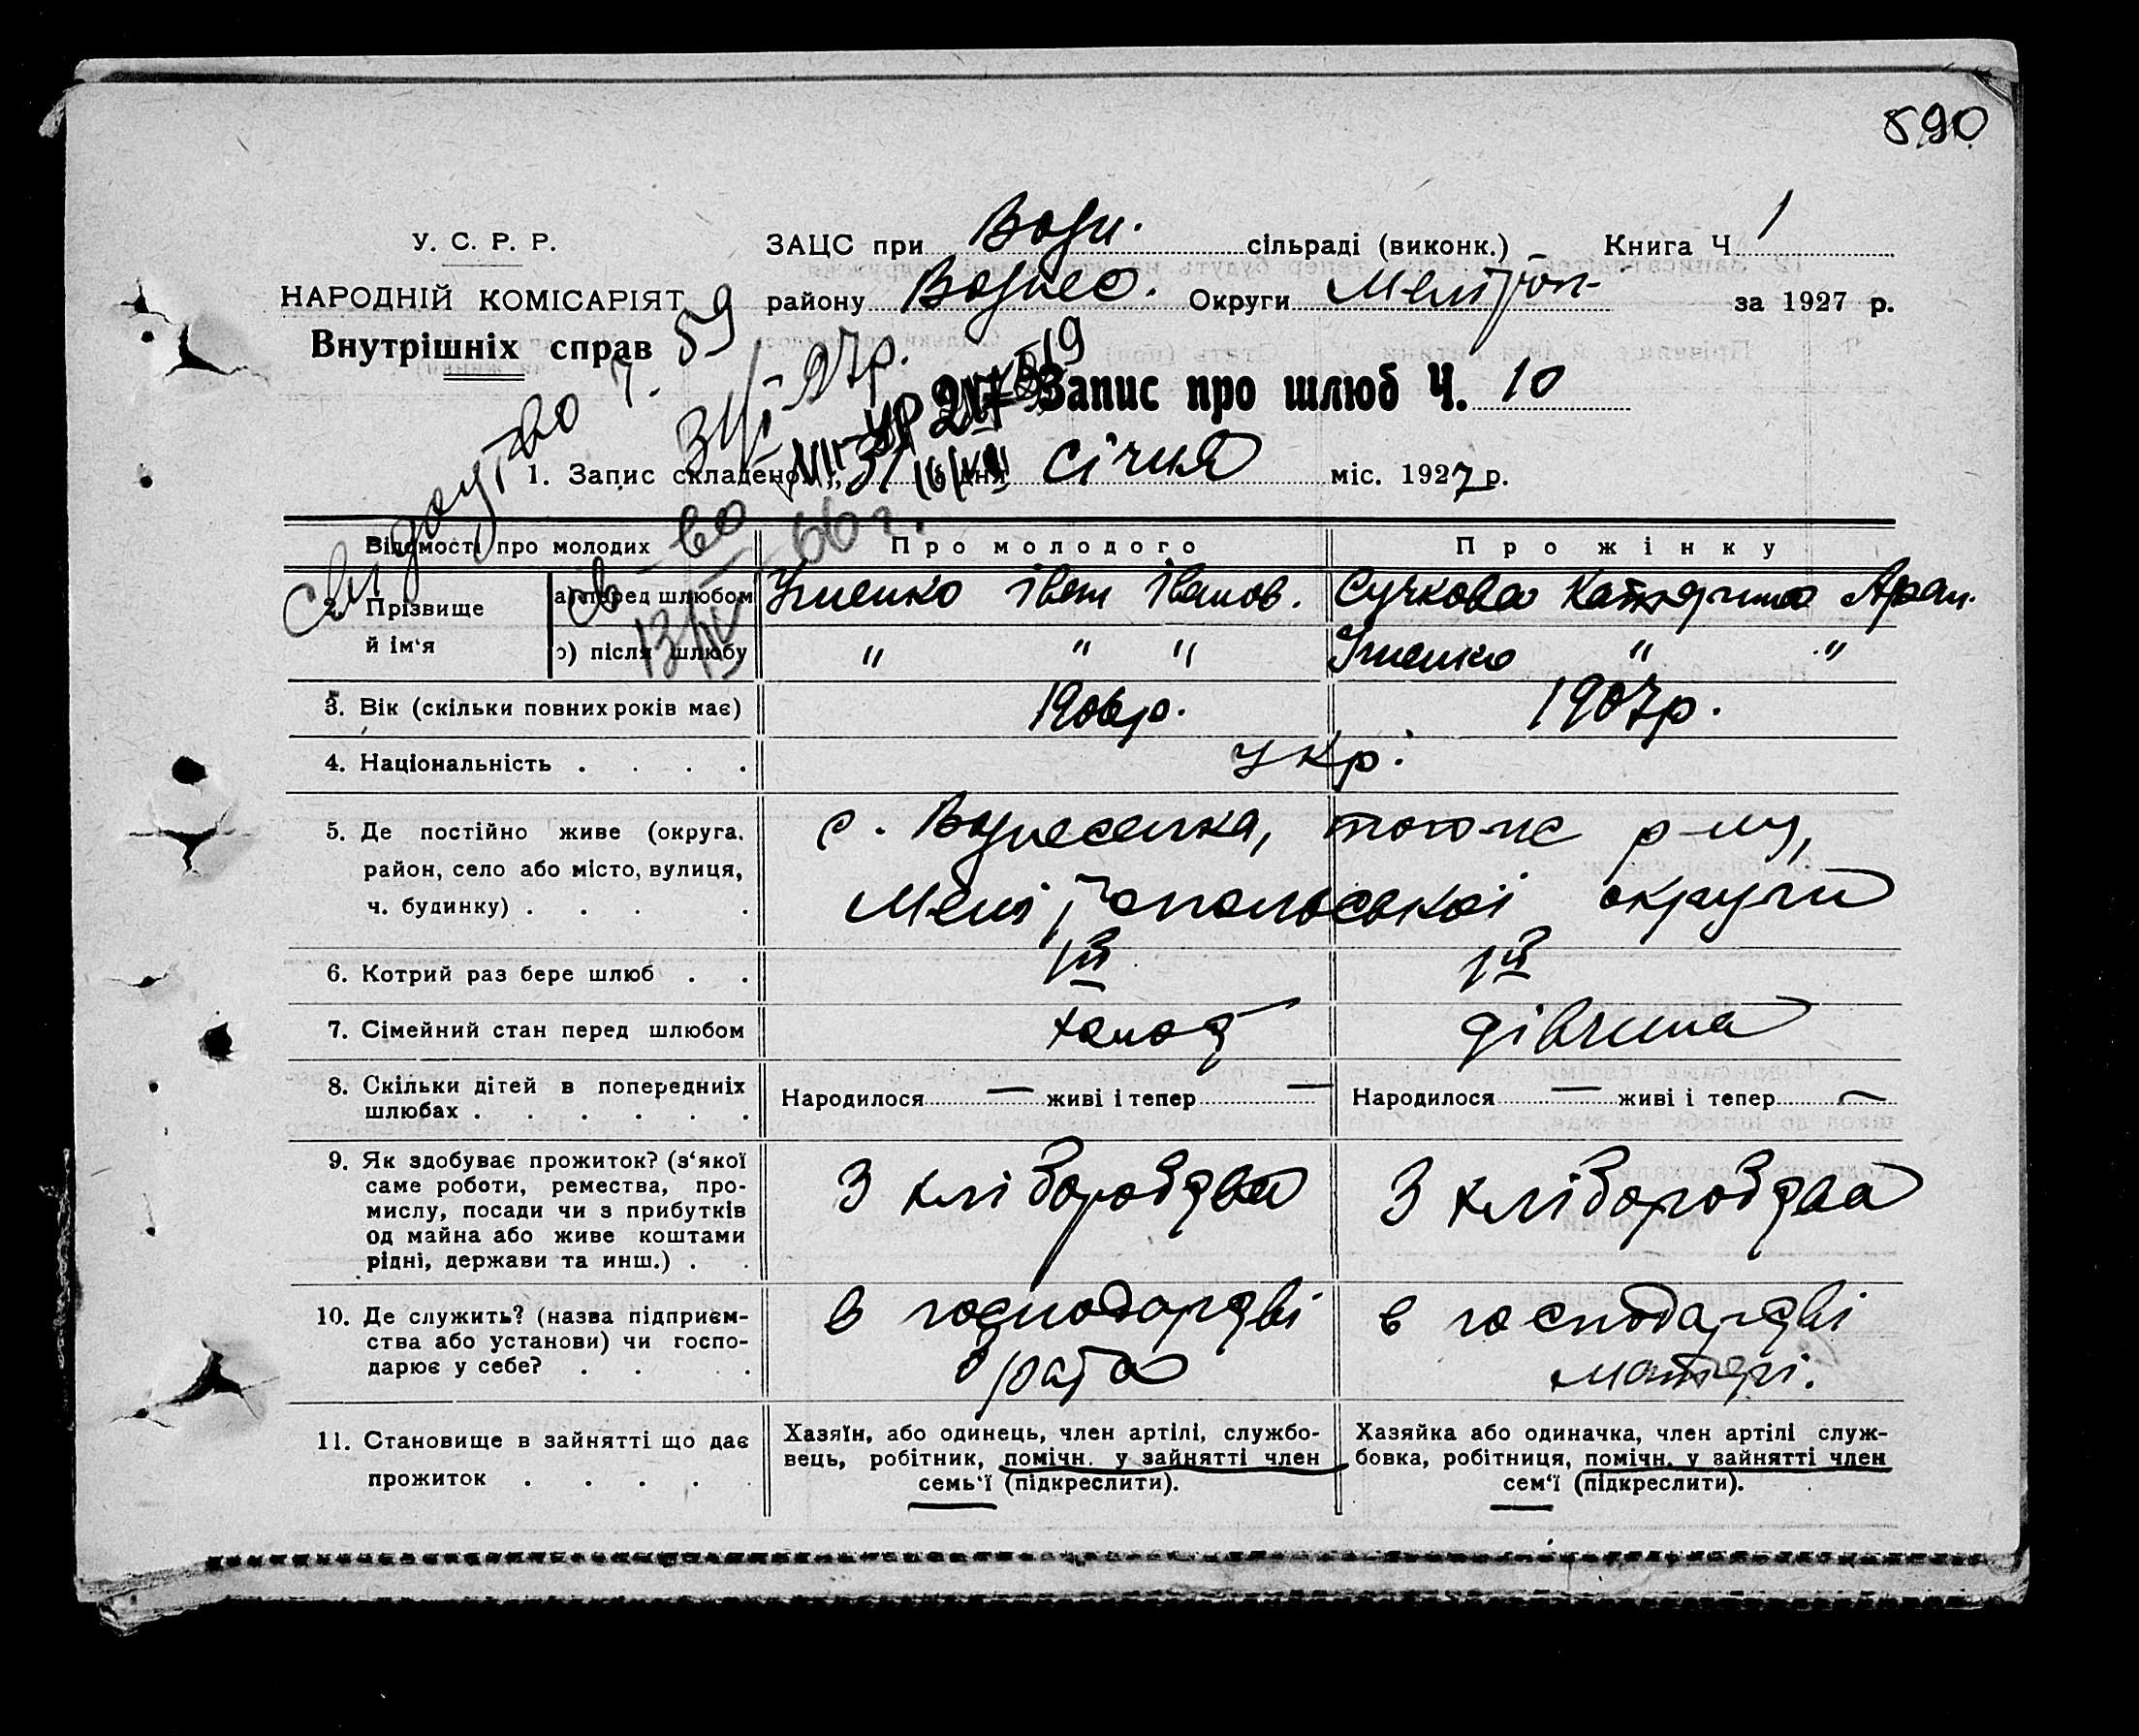 590
У. С. Р. Р.
НАРОДНІЙ КОМІСАРІЯТ
Внутрішніх справ
ЗАЦС при Возн. сільраді (виконк.) Книга Ч 1
району Вознес. Округи Меліtoп- за 1927 р.
Свідоцтво Ч. 59
31/I-27р.
Запис про шлюб Ч. 10
1. Запис складено „ 31 дня січня міс. 1927 р.
св-во
13/IV 66 г.
Відомості про молодих Про молодого Про жінку
2. Прізвище й ім‘я
а) перед шлюбом Іваn Іванов. Сучкова Катерина
б) після шлюбу " " " " "
3. Вік (скільки повних років має) 1906р. 1907р.
4. Національність . . . . укр.
5. Де постійно живе (округа. с. Вознесенка, того-ж р-ну,
район, село або місто, вулиця, Мелітопольської округи
ч. будинку) . . . .
6. Котрий раз бере шлюб . . 1й 1й
7. Сімейний стан перед шлюбом холост дівчина
8. Скільки дітей в попередниіх Народилося — живі і тепер — Народилося — живі і тепер —
шлюбах . . . . . .
9. Як здобуває прожиток? (з‘якої З хліборобства З хліборобства
саме роботи, ремества, про-
мислу, посади чи з прибутків
од майна або живе коштами
рідні, держави та инш.) . .
10. Де служить? (назва підприєм- в господарстві в господарстві
ства або установи) чи госпо- брата матері.
дарює у себе? . . .
11. Становище в зайнятті що дає
прожиток . . . .
Хазяїн, або одинець, член артілі, службо-
вець, робітник, помічн. у зайнятті член
семь‘ї (підкреслити).
Хазяйка або одиначка, член артілі служ-
бовка, робітниця, помічн. у зайнятті член
сем‘ї (підкреслити).